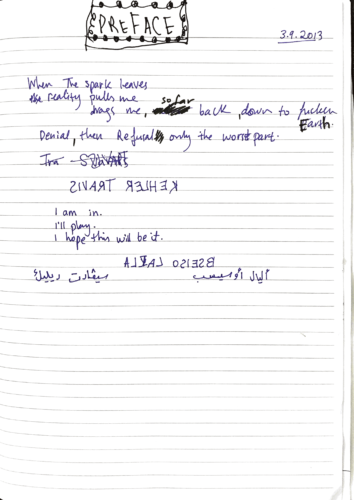 PREFACE
3.9.2013
When The spark leaves
the reality pulls me
drags me, so far back, down to fucken
Earth.
Denial, then Refusal, only the worst part.
Tra
KEHLER TRAVIS
I am in.
I'll play.
I hope this will be it.
BSEISO LAILA